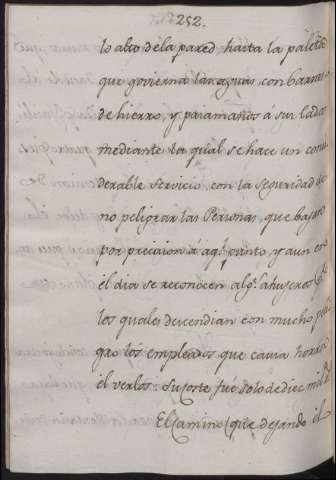 252.
lo alto de la pared hasta la paleta
que govierna las aguas, con barras
de hierro, y pasamanos á sus lados
mediante la qual se hace un consi
derable servicio, con la seguridad de
no peligrar las Personas, que bajan
por precision á aql. punto, y aun en
el dia se reconocen algs. ahujeros
los quales descendian con mucho
gao los empleados que causa horror
el verlos: Su coste fué solo de diez mil
El Camino (que dejando el